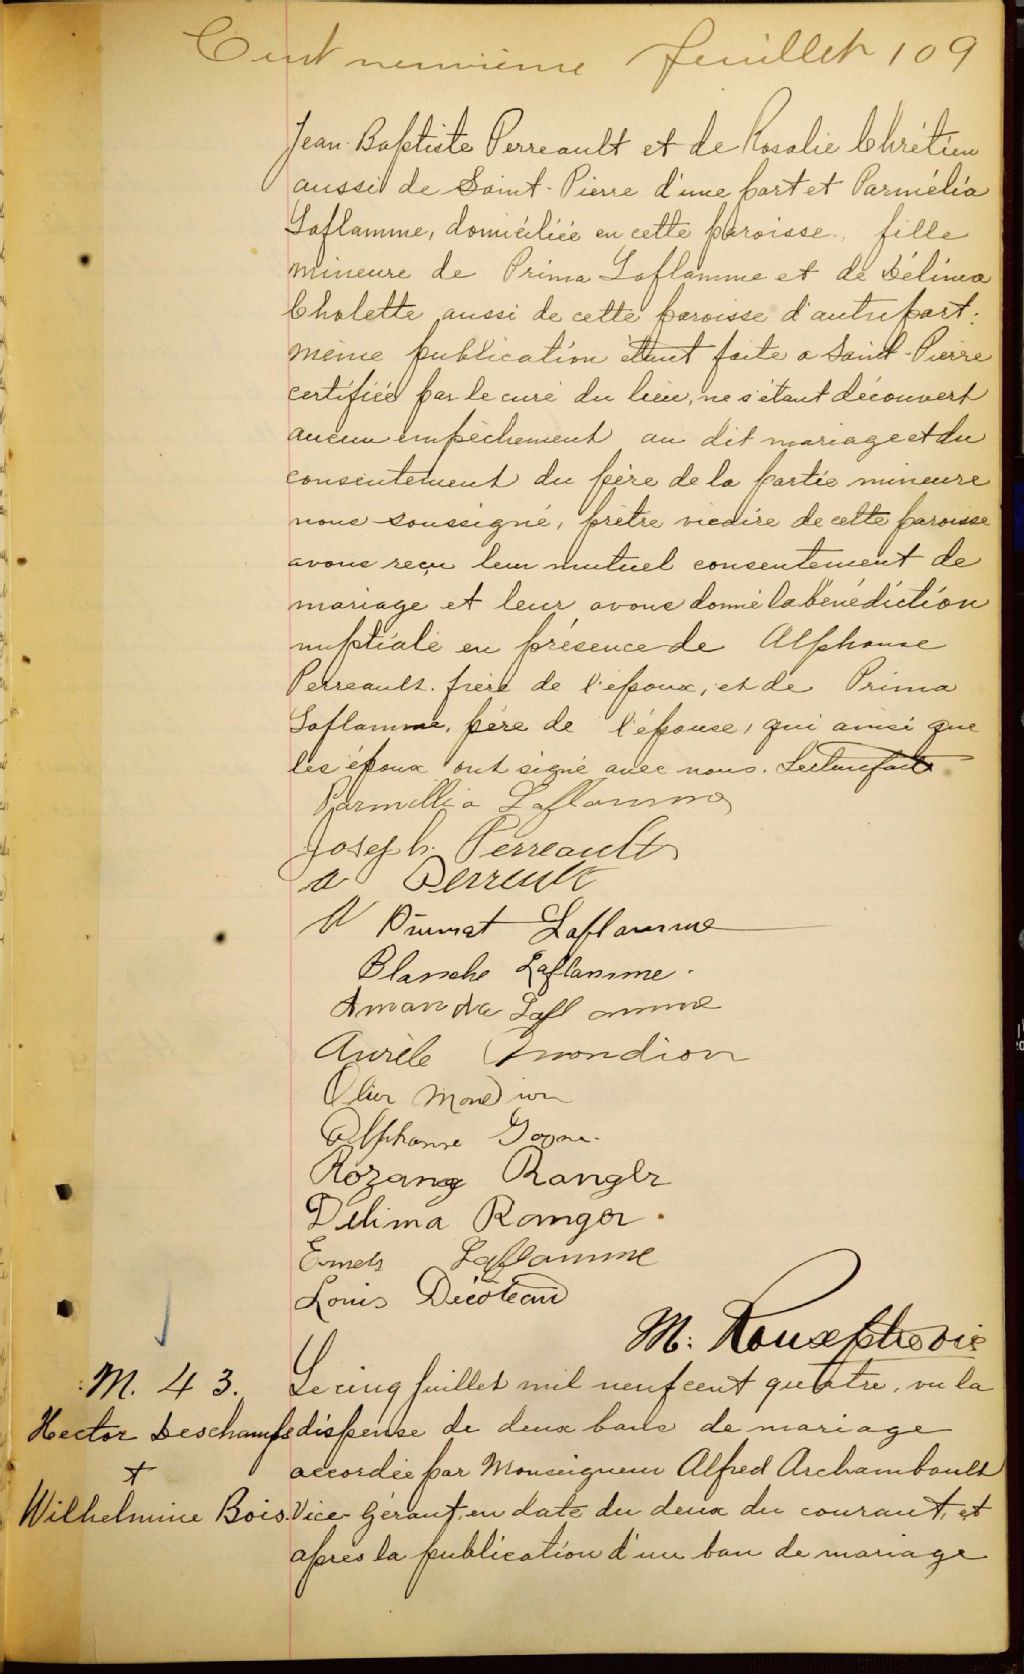 Cent neuvième feuillet 109
Jean-Baptiste Perreault et de Rosalie Chrétien
aussi de Saint-Pierre d'une part et Parmélia
Laflamme, domiciliée en cette paroisse, fille
mineure de Prima Laflamme et de Délima
Cholette aussi de cette paroisse d'autre part:
même publication étant faite a Saint-Pierre
certifiée par le curé du lieu, ne s'étant découvert
aucun empêchement au dit mariage et du
consentement du père de la partie mineure
nous soussigné, prêtre vicaire de cette paroisse
avons reçu leur mutuel consentement de
mariage et leur avons donné la bénédiction
nuptiale en présence de Alphonse
Perreault frère de l'époux, et de Prima
Laflamme, père de l'épouse, qui ainsi que
les époux ont signé avec nous. Lecture faite
Parmillia Laflamme
Joseph Perreault
A Perreult
Laflamme
Blanche Laflamme.
Amanda Laflamme
Aurèle Mondion
Olier Mondion
Alphonse
Rozana Ranger
Délima Ranger.
Laflamme
Louis Décoteau
M. Roux ptre vic
M. 43.
Hector Deschamps
+
Wilhelmine Bois.
Le cinq juillet mil neuf cent quatre, vu la
dispense de deux bans de mariage
accordée par Monseigneur Alfred Archambault
Vice-Gérant, en date du deux du courant, et
après la publication d'un ban de mariage